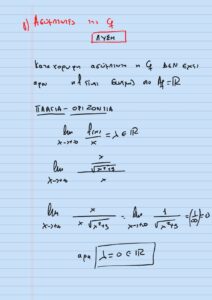 β) Ασύμπτωτες της Cf
ΛΥΣΗ
Κατακόρυφη ασύμπτωτη η Cf δεν έχει
αφού η f είναι συνεχής στο Af = ℝ
ΠΛΑΓΙΑ - ΟΡΙΖΟΝΤΙΑ
lim x→+∞ f(x)/x = λ ∈ ℝ
lim x→+∞ (x/√(x²+9))/x
lim x→+∞ x/(x√(x²+9)) = lim x→+∞ 1/√(x²+9) = (1/∞) = 0
άρα λ = 0 ∈ ℝ